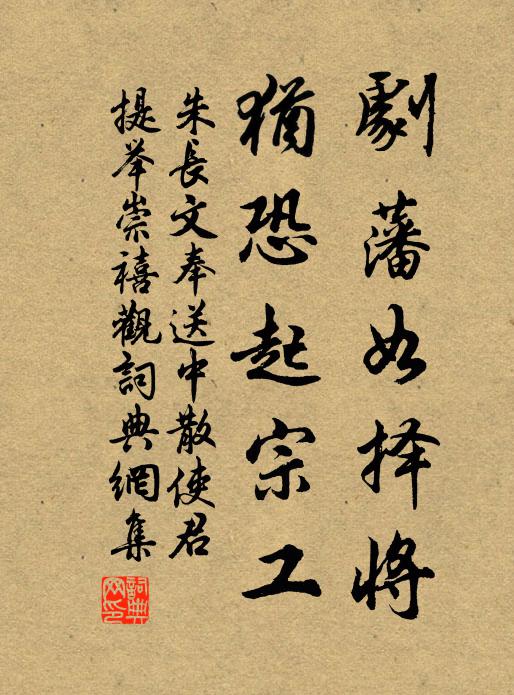 劇藩如择將
猶恐起宗工
朱長文奉送中散使君
提举崇禧觀詞典網集
詞典网印